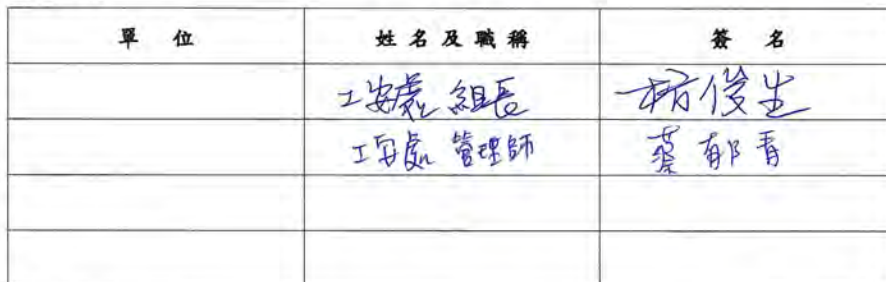 單 位 姓 名 及 職 稱 簽 名
工安處 組長 俊生
工安處 管理師 蔡郁青